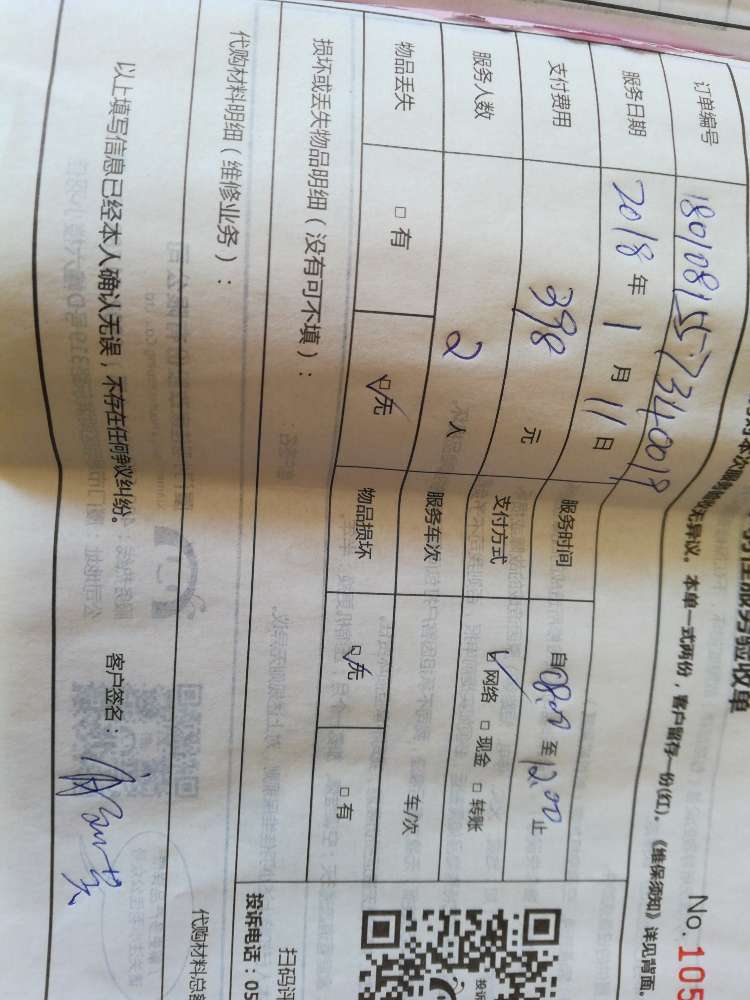 服务验收单
No. 105
本次服务无异议。本单一式两份，客户留存一份(红)。《维保须知》详见背面。
订单编号 180108155734009
服务日期 2018 年 1 月 11 日 服务时间 自 08:00 至 12:00 止
支付费用 398 元 支付方式 ☑ 网络 □ 现金 □ 转账
服务人数 2 人 服务车次 车/次
物品丢失 □ 有 ☑ 无 物品损坏 ☑ 无 □ 有
损坏或丢失物品明细（没有可不填）：
扫码评
投诉
投诉电话：05
代购材料明细（维修业务）：
代购材料总
以上填写信息已经本人确认无误，不存在任何争议纠纷。 客户签名：